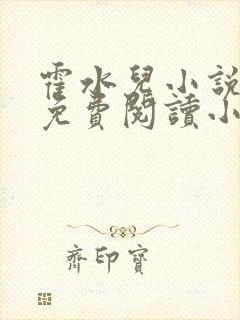 霍水兒小說
免費閱讀小
齊印寶